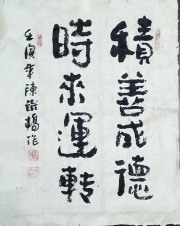 積善成德
時來運轉
壬寅年陳銳楊作